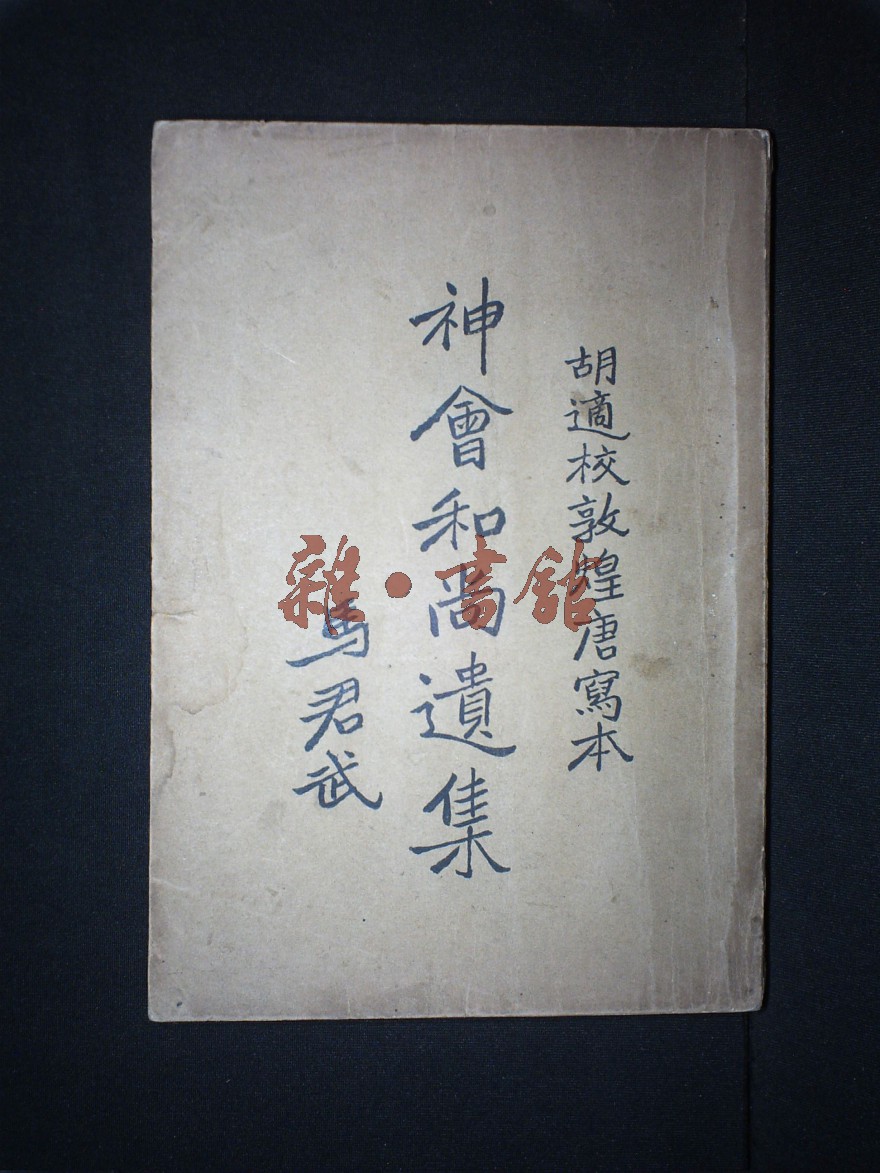 胡適校敦煌唐寫本
神會和尚遺集
馬君武
雜·書館